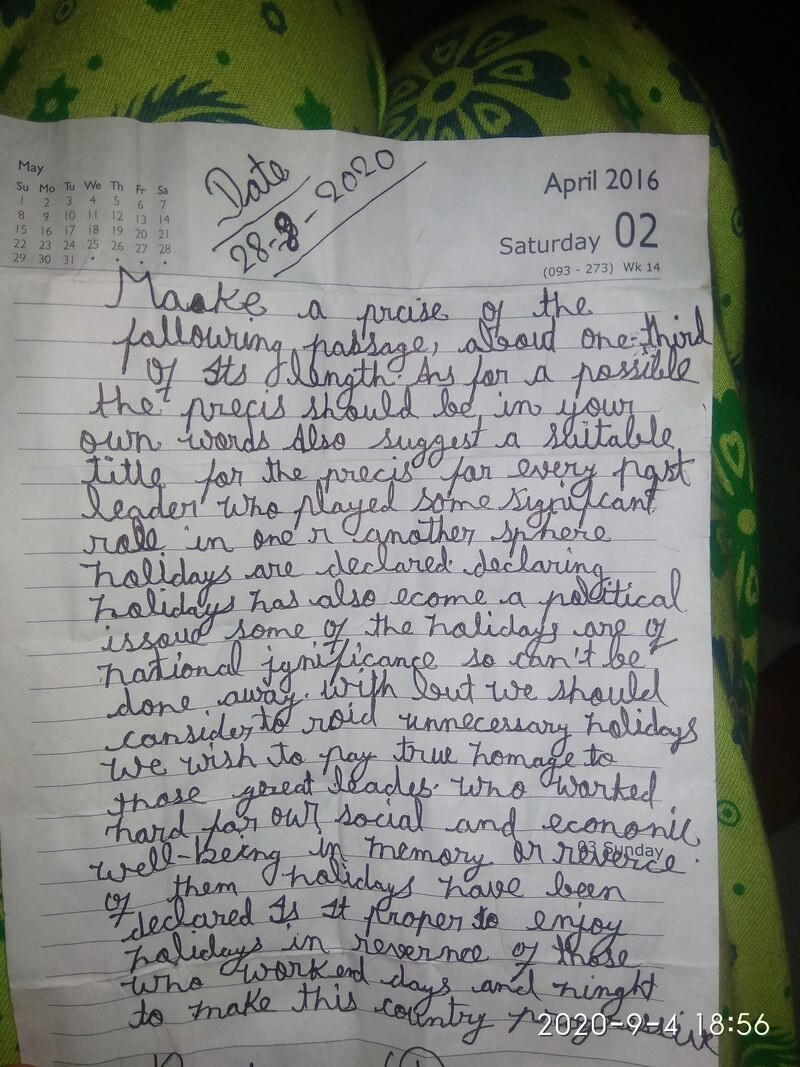 May
Su Mo Tu We Th Fr Sa
1 2 3 4 5 6 7
8 9 10 11 12 13 14
15 16 17 18 19 20 21
22 23 24 25 26 27 28
29 30 31 • • • •
Date
28-8-2020
April 2016
Saturday 02
(093 - 273) Wk 14
Make a prcise of the
following passage, about one-third
of Its length. As for a possible
the precis should be in your
own words Also suggest a suitable
title for the precis for every past
leader who played some significant
role in one r another sphere
holidays are declared. declaring
holidays has also ecome a political
issoue some of the holidays are of
national significance so can't be
done away. with but we should
consider to roid unnecessary holidays
We wish to pay true homage to
those great leades who worked
hard for our social and economic
03 Sunday
well-being in memory or reverce
of them holidays have been
declared Is It proper to enjoy
holidays in revernce of those
who worked days and ninght
to make this country
2020-9-4 18:56